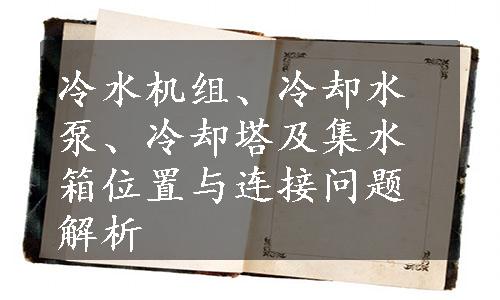 冷水机组、冷却水
泵、冷却塔及集水
箱位置与连接问题
解析